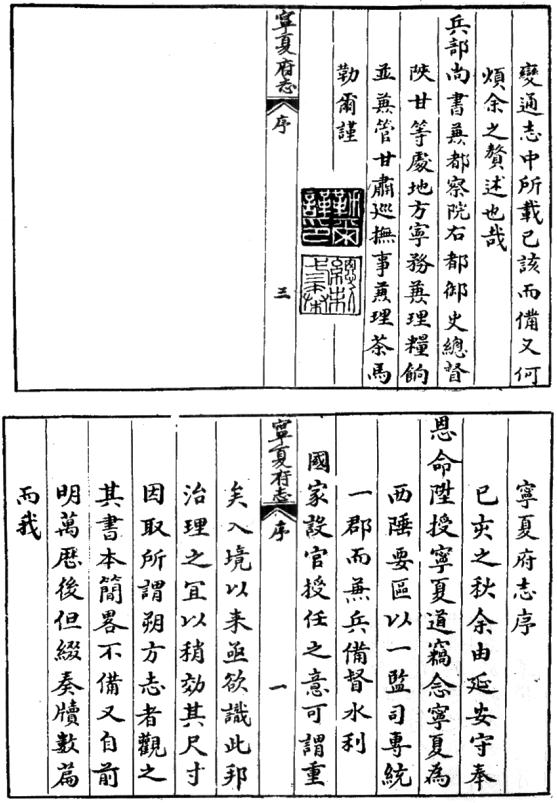 變通志中所載已該而備又何
煩余之贅述也哉
兵部尚書兼都察院右都御史總督
陝甘等處地方軍務兼理糧餉
並兼管甘肅巡撫事兼理茶馬
勒爾謹
勒爾謹印
寧夏府志
序
三
寧夏府志序
己亥之秋余由延安守奉
恩命陞授寧夏道竊念寧夏為
西陲要區以一監司專統
一郡而兼兵備督水利
國家設官授任之意可謂重
寧夏府志
序
一
矣入境以来亟欲識此邦
治理之宜以稍効其尺寸
因取所謂朔方志者觀之
其書本簡畧不備又自前
明萬厯後但綴奏牘數篇
而我